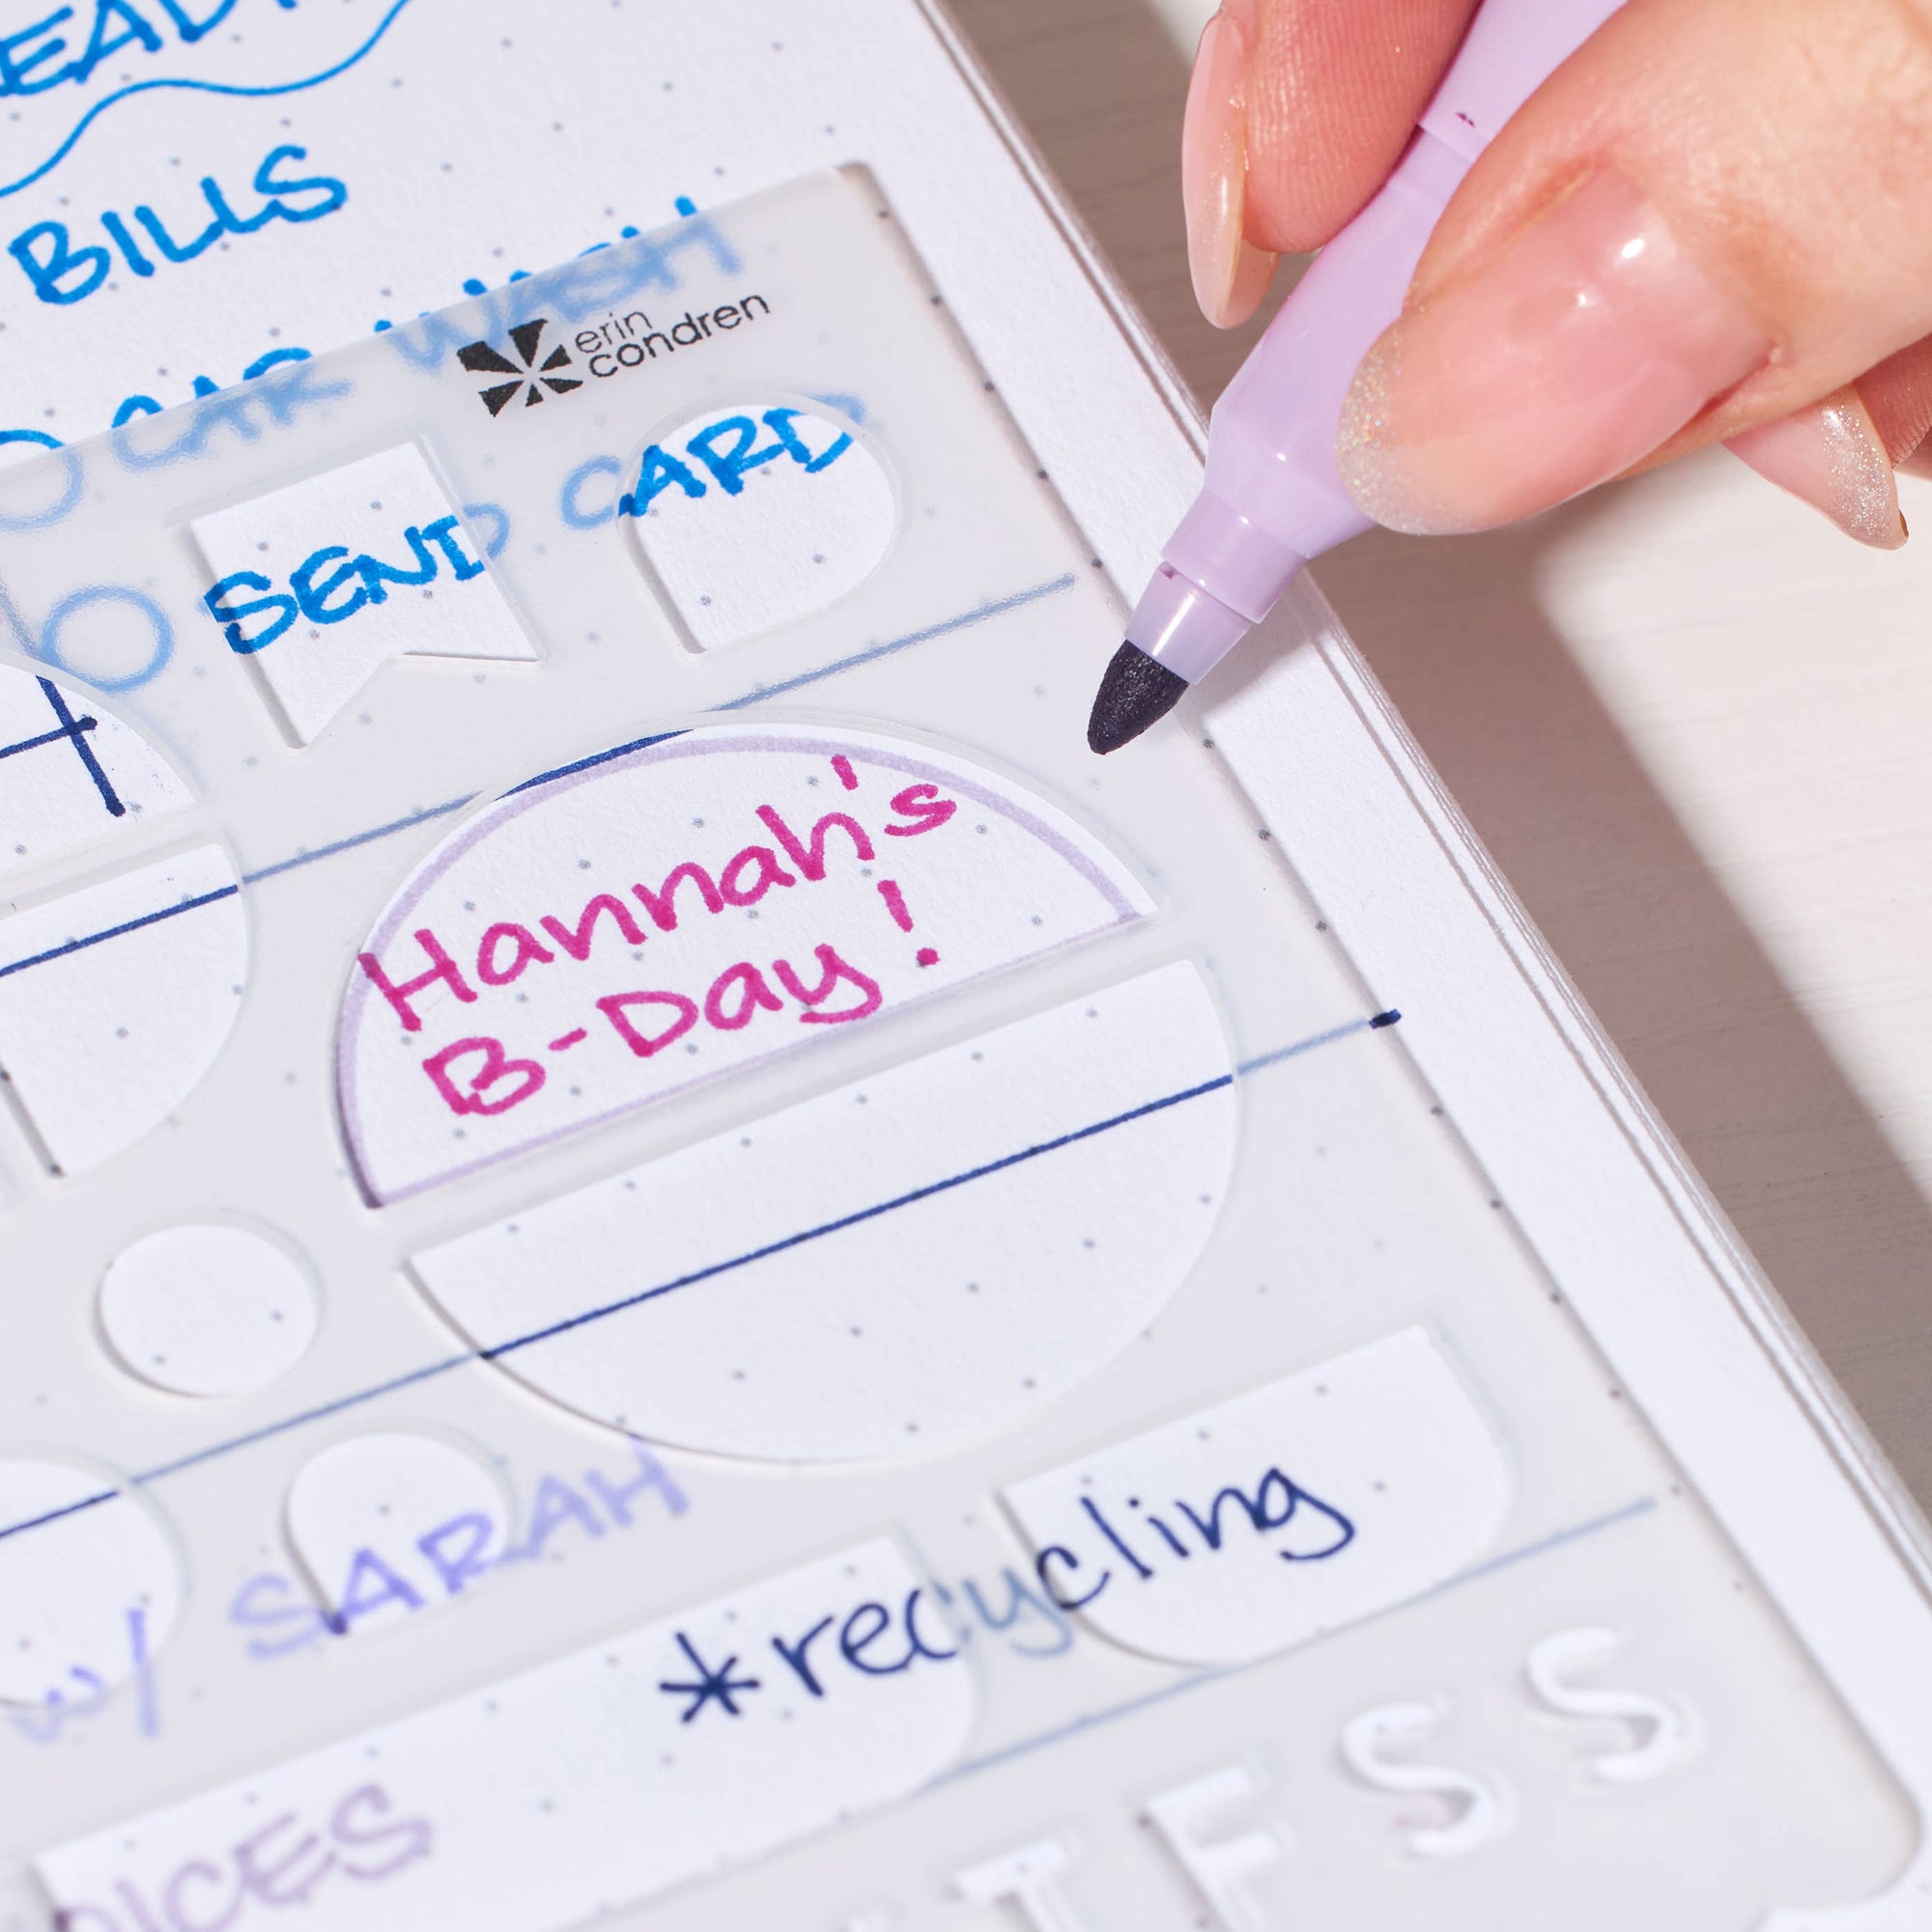 BILLS
CAR WASH
erin
condren
SEND CARD
Hannah's
B-Day!
w/ SARAH
*recycling
T F S S